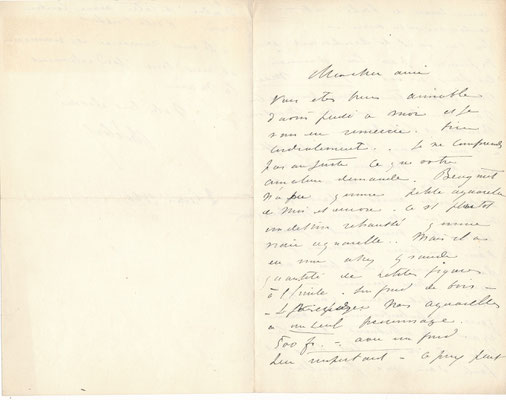 Mon cher ami
Vous êtes bien aimable
d'avoir pensé à moi et je
vous en remercie bien
cordialement. Je ne comprends
pas au juste ce que votre
amateur demande.
n'a que petite aquarelle
de moi et encore. Ce st plutot
un dessin rehaussé
vraie aquarelle. Mais il a
eu une assez grande
quantité de petites figures
à l'huile. Sur fond de bois
mes aquarelles
à un seul personnage
500 fr. - avec un fond
peu important - Ce prix peut